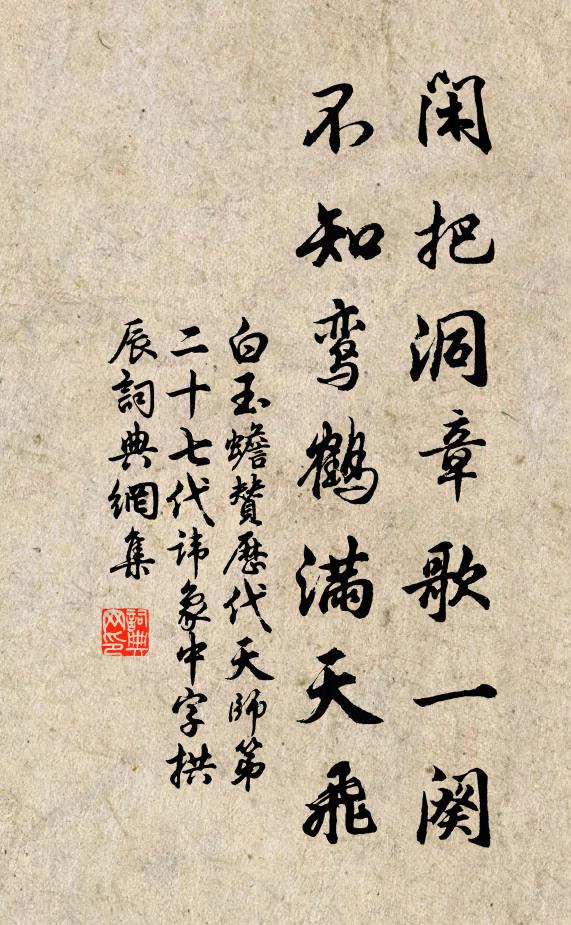 闲把洞章歌一阕
不知鸾鹤满天飞
白玉蟾贊歷代天師第
二十七代諱象中字拱
辰詞典網集
詞典
网印